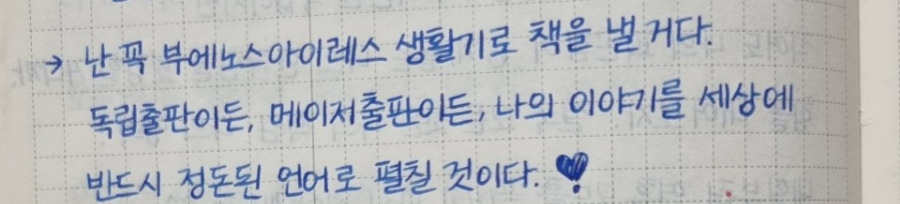 → 난 꼭 부에노스아이레스 생활기로 책을 낼 거다.
독립출판이든, 메이저출판이든, 나의 이야기를 세상에
반드시 정돈된 언어로 펼칠 것이다. ♥